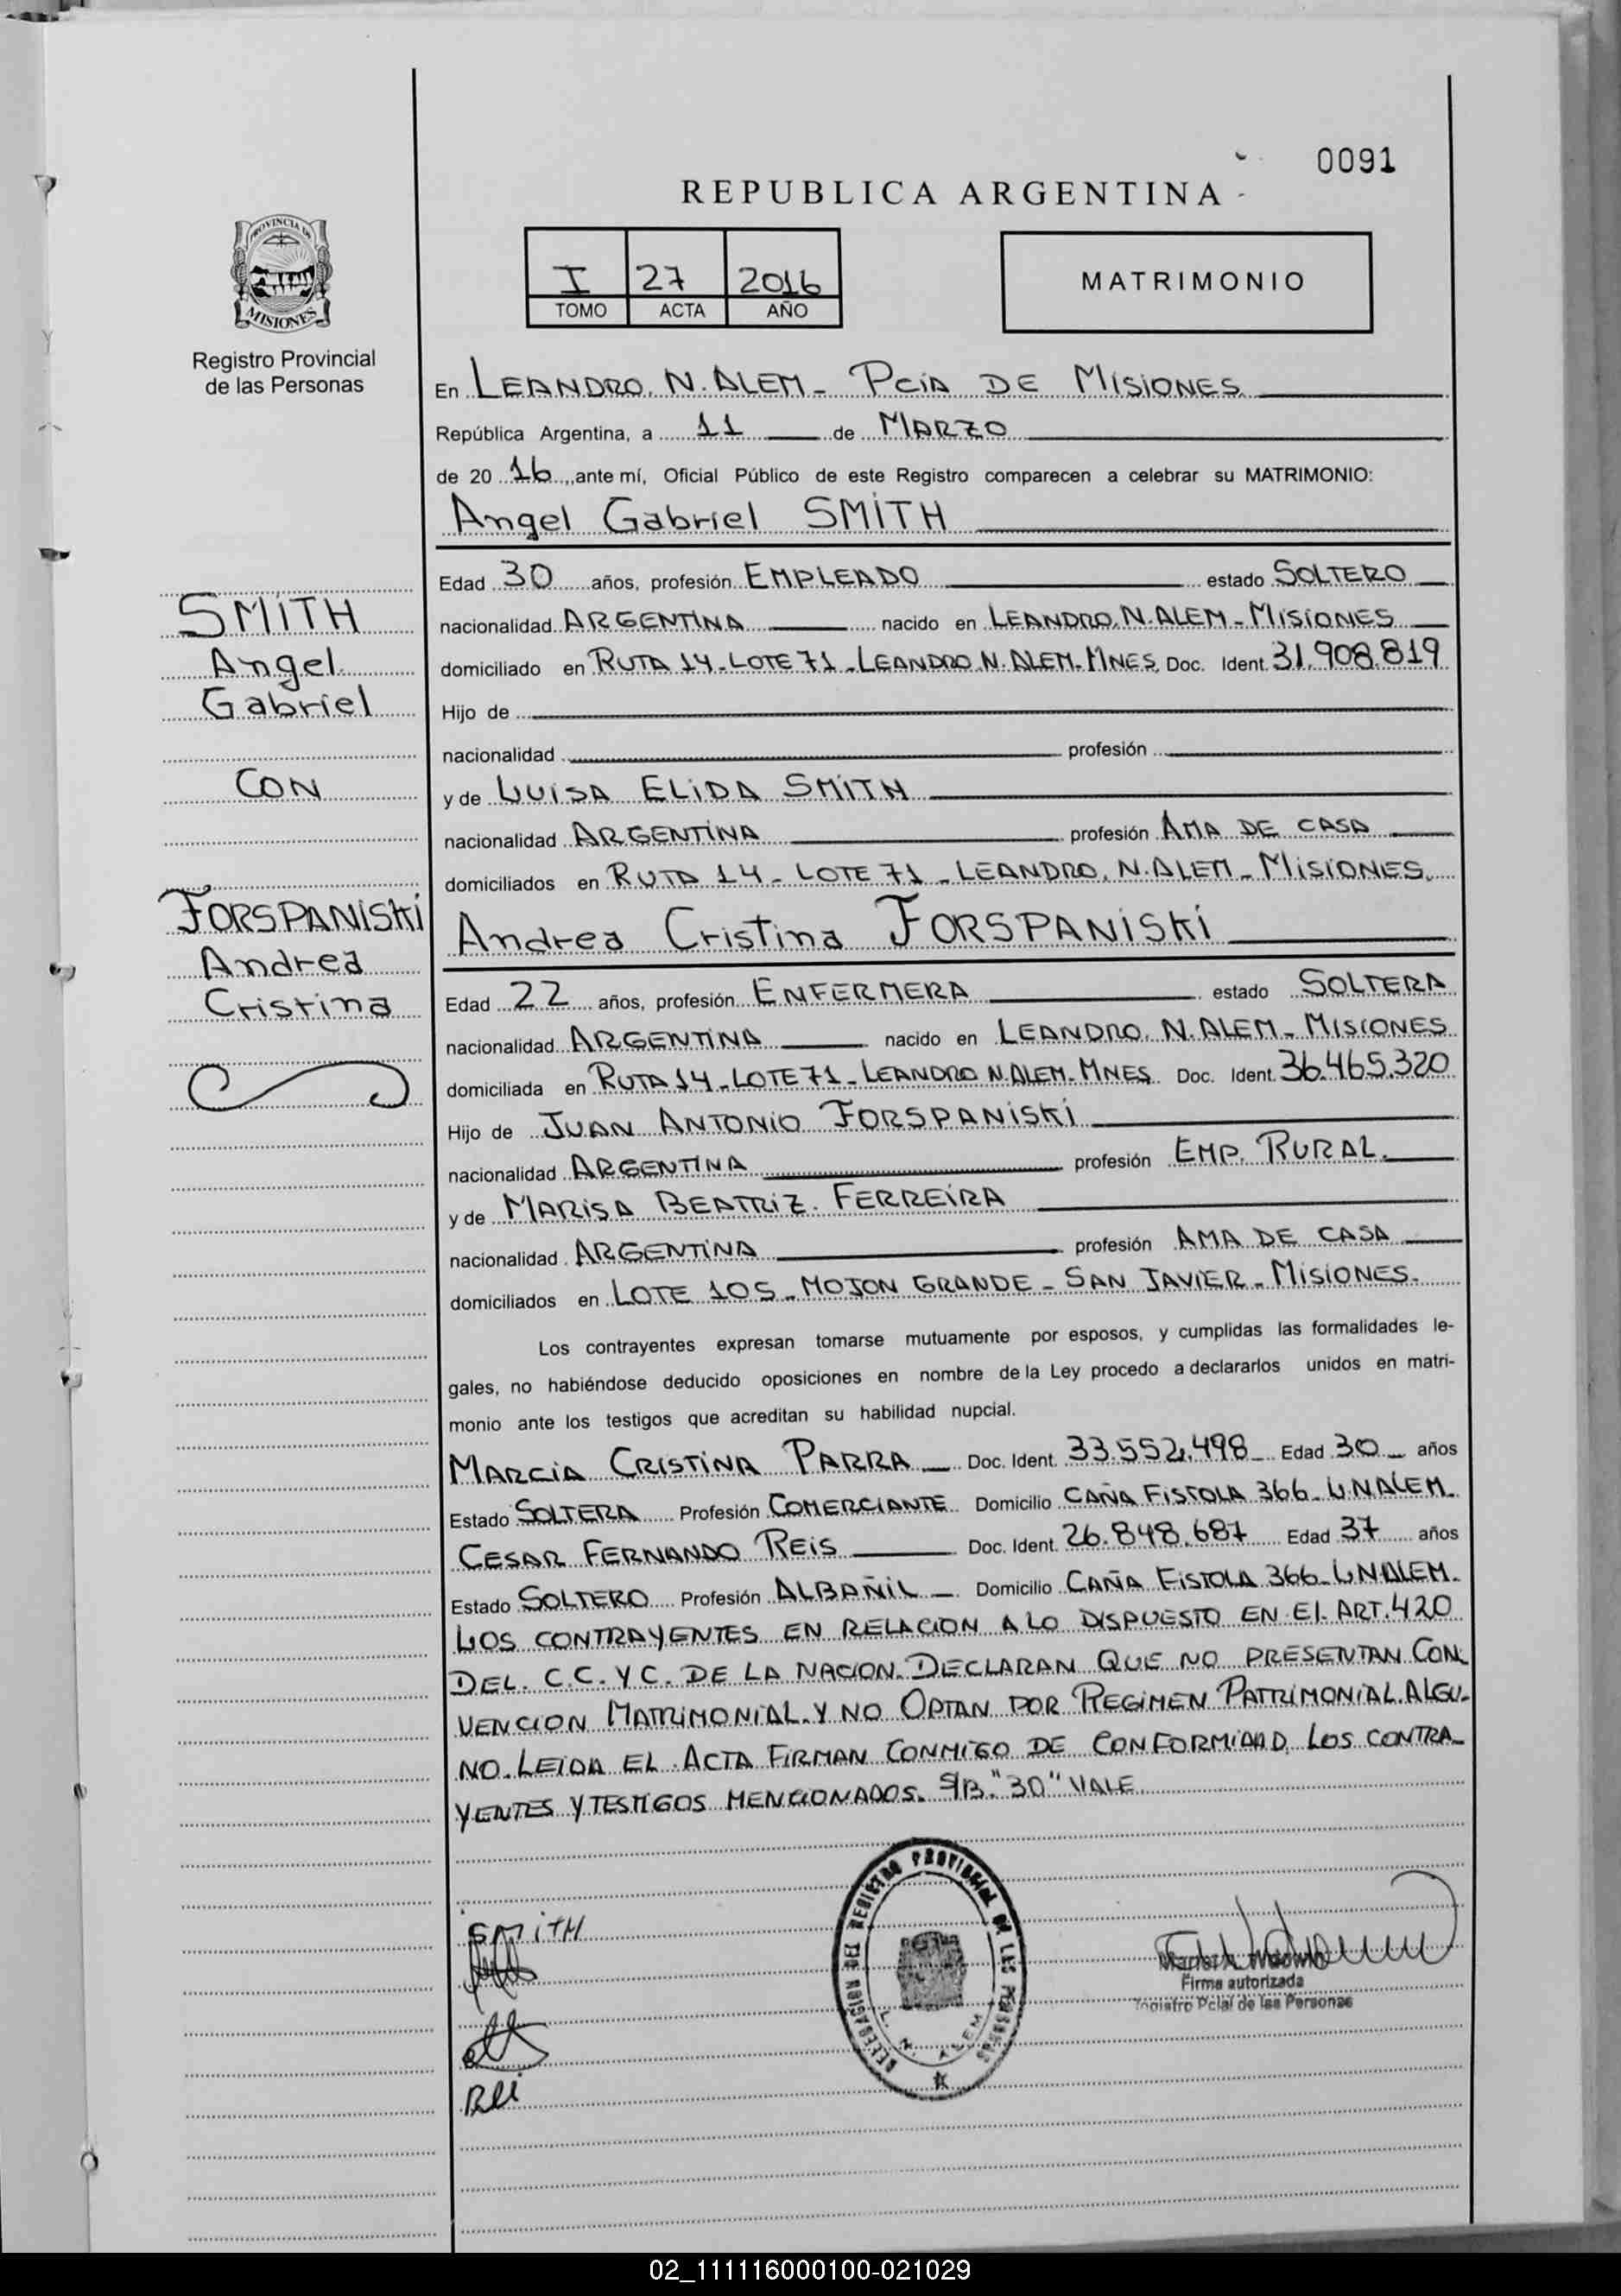 0091
REPUBLICA ARGENTINA
PROVINCIA DE
MISIONES
Registro Provincial
de las Personas
I 27 2016
TOMO ACTA AÑO
MATRIMONIO
En LEANDRO. N. ALEM - PCIA DE MISIONES
República Argentina, a 11 de MARZO
de 20 16, ante mí, Oficial Público de este Registro comparecen a celebrar su MATRIMONIO:
Angel Gabriel SMITH
Edad 30 años, profesión EMPLEADO estado SOLTERO
nacionalidad ARGENTINA nacido en LEANDRO. N. ALEM - MISIONES
domiciliado en RUTA 14 - LOTE 71 - LEANDRO N. ALEM - MNES. Doc. Ident. 31.908.819
Hijo de
nacionalidad profesión
y de LUISA ELIDA SMITH
nacionalidad ARGENTINA profesión AMA DE CASA
domiciliados en RUTA 14 - LOTE 71 - LEANDRO. N. ALEM - MISIONES.
Andrea Cristina FORSPANISKI
Edad 22 años, profesión ENFERMERA estado SOLTERA
nacionalidad ARGENTINA nacido en LEANDRO. N. ALEM - MISIONES
domiciliada en RUTA 14 - LOTE 71 - LEANDRO N. ALEM - MNES Doc. Ident. 36.465.320
Hijo de JUAN ANTONIO FORSPANISKI
nacionalidad ARGENTINA profesión EMP. RURAL.
y de MARISA BEATRIZ. FERREIRA
nacionalidad ARGENTINA profesión AMA DE CASA
domiciliados en LOTE 105 - MOJON GRANDE - SAN JAVIER - MISIONES.
Los contrayentes expresan tomarse mutuamente por esposos, y cumplidas las formalidades le-
gales, no habiéndose deducido oposiciones en nombre de la Ley procedo a declararlos unidos en matri-
monio ante los testigos que acreditan su habilidad nupcial.
MARCIA CRISTINA PARRA Doc. Ident. 33.552.498 Edad 30 años
Estado SOLTERA Profesión COMERCIANTE Domicilio CAÑA FISTOLA 366 - L.N ALEM.
CESAR FERNANDO REIS Doc. Ident. 26.848.687 Edad 37 años
Estado SOLTERO Profesión ALBAÑIL Domicilio CAÑA FISTOLA 366 - L.N ALEM.
LOS CONTRAYENTES EN RELACION A LO DISPUESTO EN EL ART. 420
DEL. C.C. Y C. DE LA NACION. DECLARAN QUE NO PRESENTAN CON-
VENCION MATRIMONIAL. Y NO OPTAN POR REGIMEN PATRIMONIAL. ALGU-
NO. LEIDA EL ACTA FIRMAN CONMIGO DE CONFORMIDAD, LOS CONTRA-
YENTES Y TESTIGOS MENCIONADOS. S/B. "30" VALE
SMITH
Angel
Gabriel
CON
FORSPANISKI
Andrea
Cristina
SMITH
DELEGACION DEL REGISTRO PROVINCIAL DE LAS PERSONAS
L. N. ALEM
Firma autorizada
Registro Pcial de las Personas
02_111116000100-021029